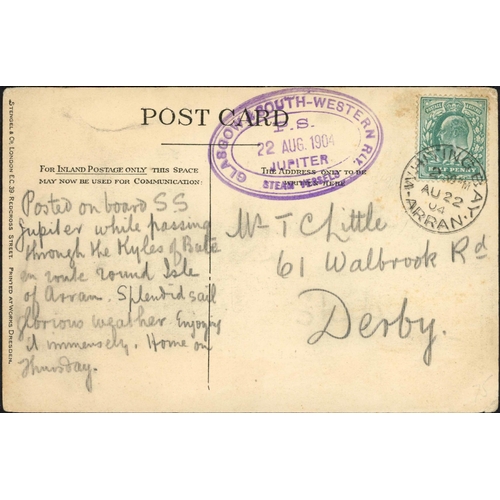 POST CARD
GLASGOW & SOUTH-WESTERN RLY
P.S.
22 AUG. 1904
JUPITER
STEAM VESSELS
HALFPENNY
WHITING BAY
AU 22
04
ARRAN
FOR INLAND POSTAGE ONLY THIS SPACE
MAY NOW BE USED FOR COMMUNICATION:
THE ADDRESS ONLY TO BE
HERE
Posted on board SS
Jupiter while passing
through the Kyles of Bute
en route round Isle
of Arran. Splendid sail
glorious weather. Enjoying
it immensely. Home on
Thursday.
Mr T C Little
61 Walbrook Rd
Derby.
STENGEL & CO LONDON E.C. 39 REDCROSS STREET. PRINTED AT WORKS DRESDEN.